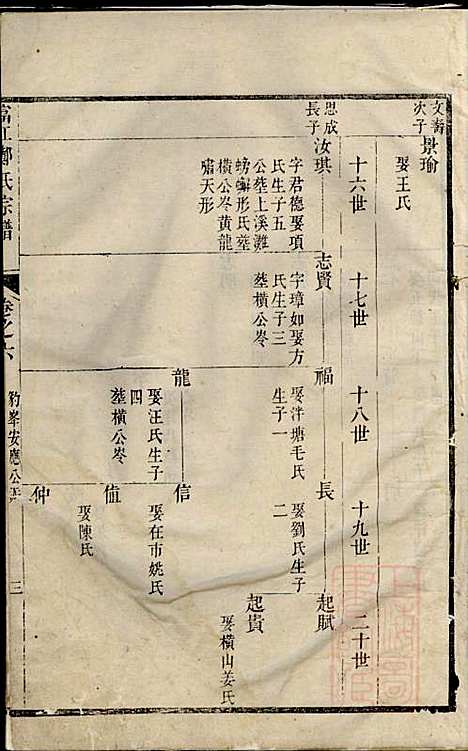 文壽
次子
景瑜
娶王氏
十六世
十七世
十八世
十九世
二十世
思成
長子
汝琪
字君德娶項
氏生子五
公塟上溪灘
螃蠏形氏塟
橫公岑黃龍
嘯天形
志賢
字璋如娶方
氏生子三
塟橫公岑
福
娶泮塘毛氏
生子一
長
娶劉氏生子
二
起賦
起貴
娶橫山姜氏
龍
娶汪氏生子
四
塟橫公岑
信
娶在市姚氏
值
娶陳氏
仲
氏宗譜
卷之六
安應公
三